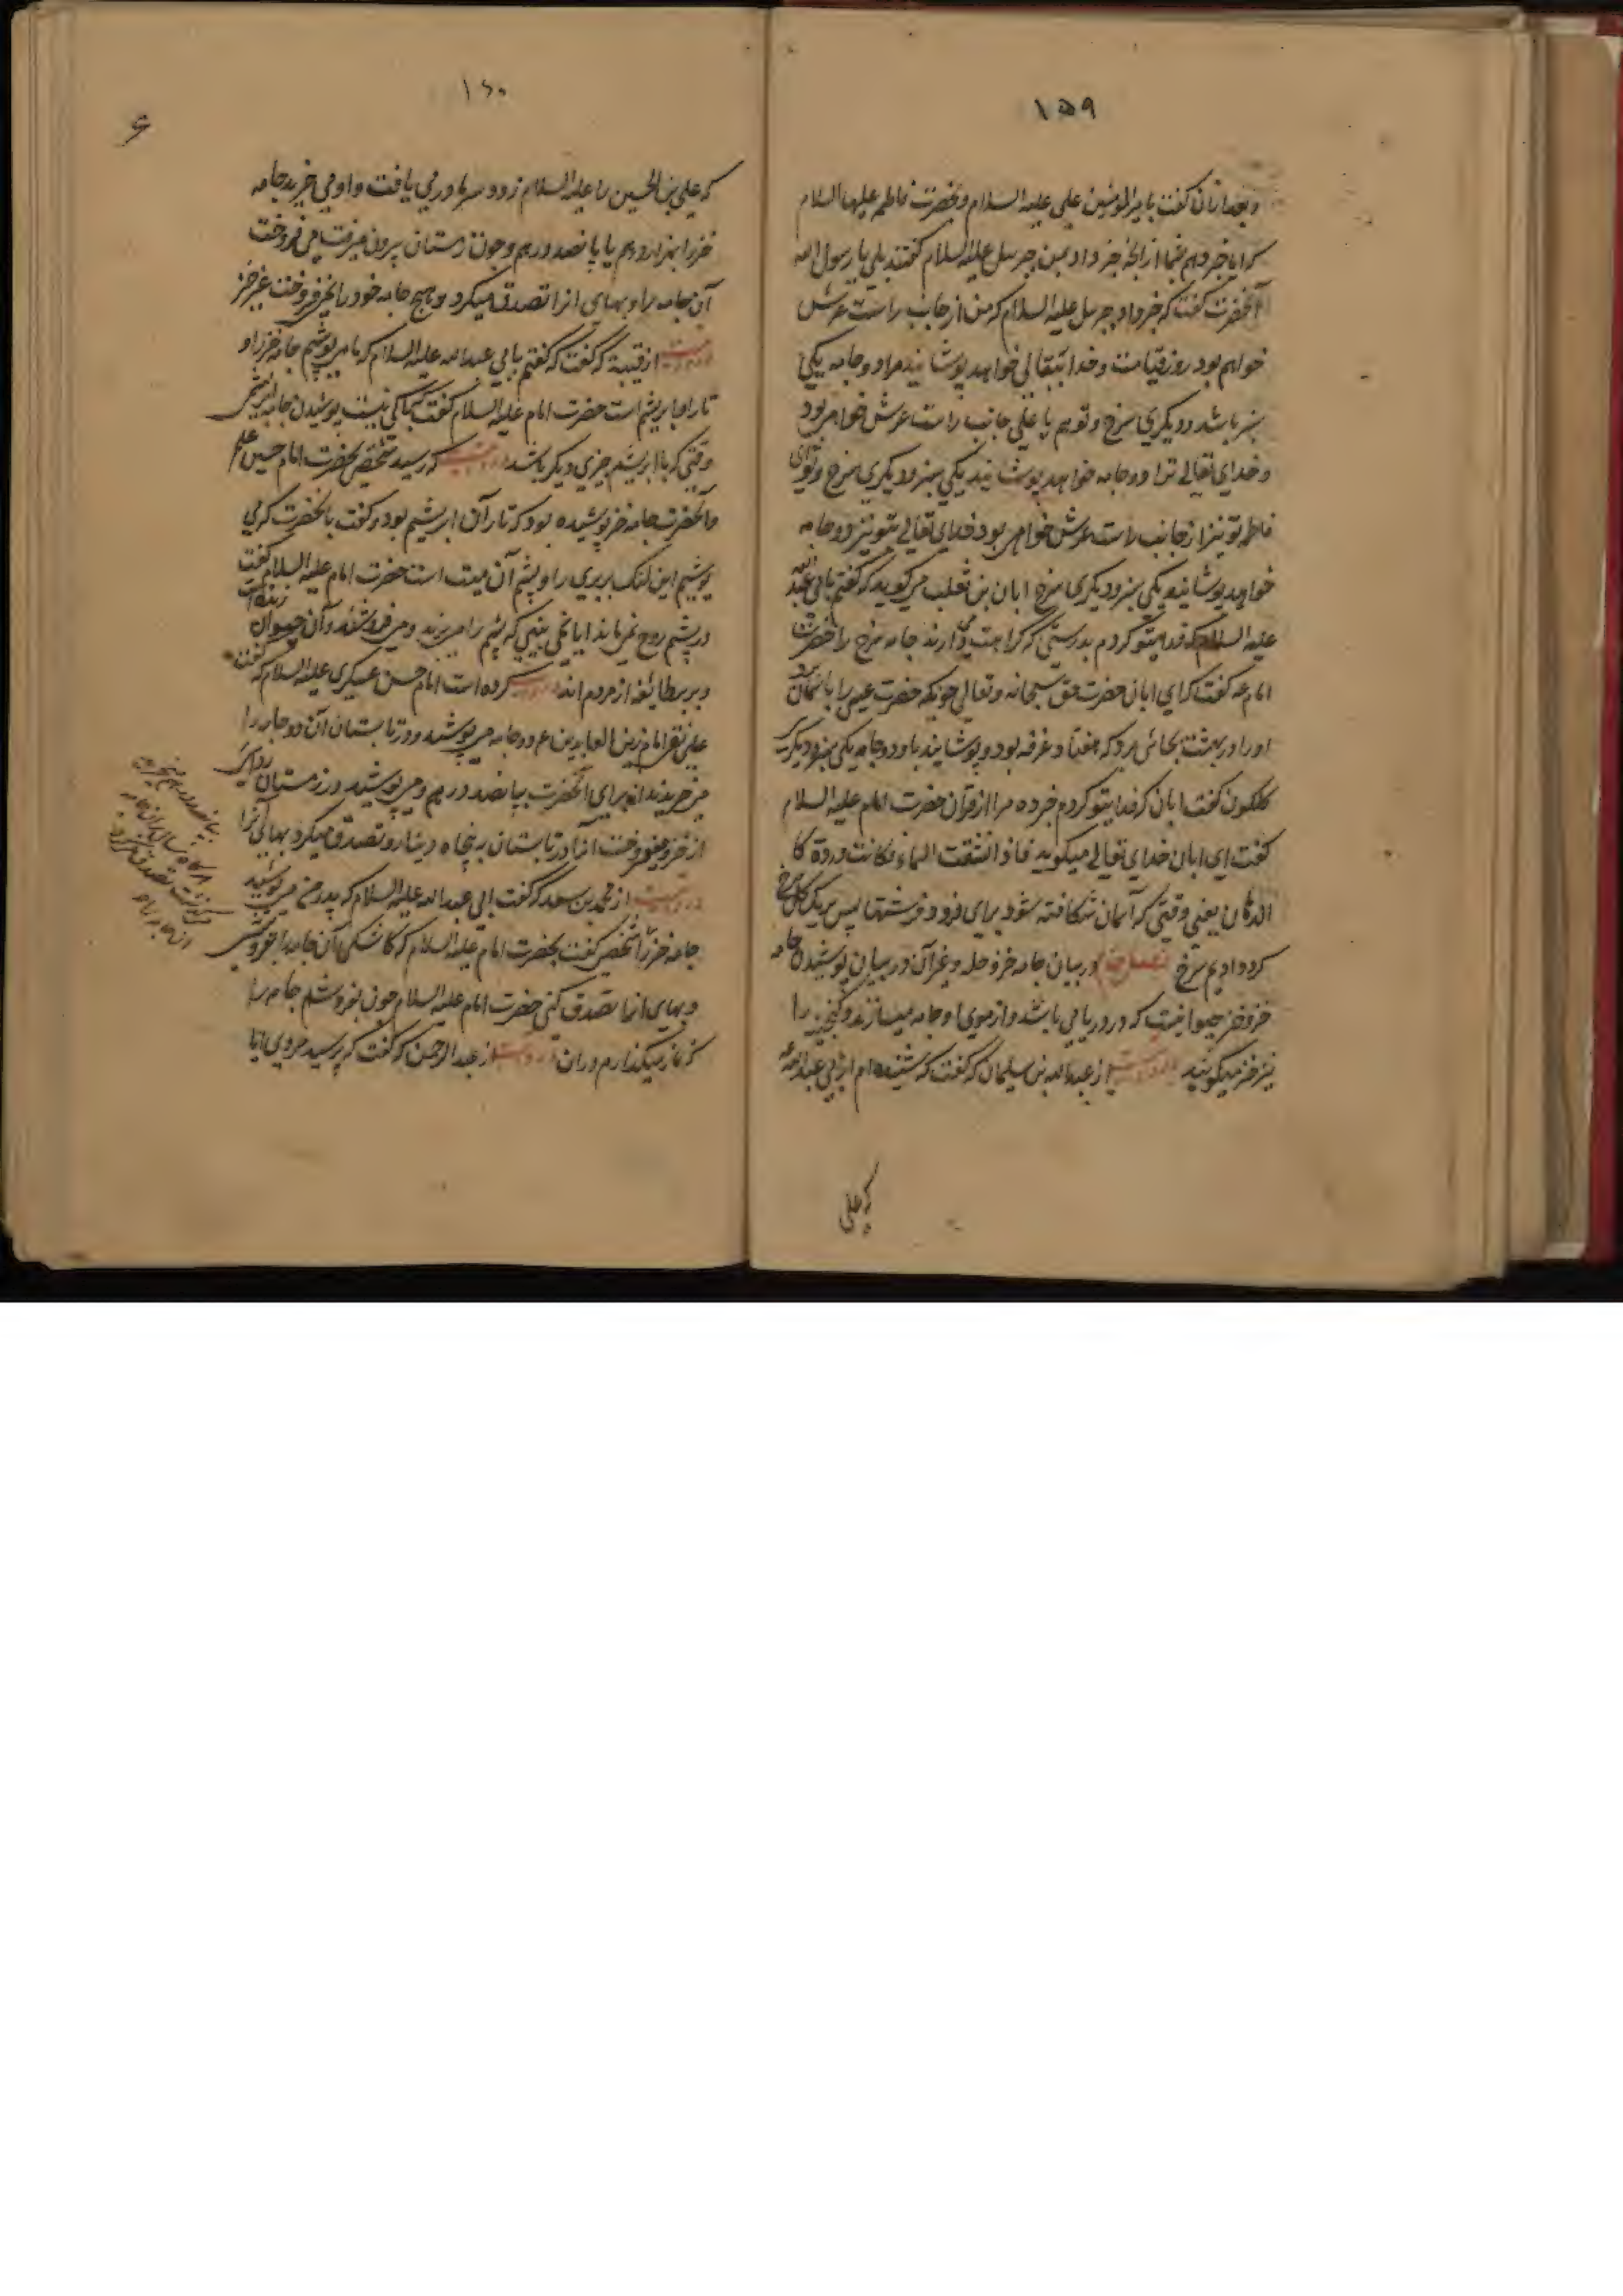 ۱۵۹
و بعد ازان گفت بامیرالمومنین علی علیه السلام و بحضرت فاطمه علیها السلام
که ایا خبر دهم شما را از انچه خبر داد بمن جبرئیل علیه السلام گفتند بلی یا رسول الله
آنحضرت گفت که خبر داد جبرئیل علیه السلام که من از جانب راست عرش
خواهم بود روز قیامت و خدایتعالی خواهد پوشانید مرا دو جامه یکی
سبز باشد و دیگری سرخ و تو هم یا علی جانب راست عرش خواهی بود
و خدای تعالی ترا دو جامه خواهد پوشانید یکی سبز و دیگری سرخ و تو ای
فاطمه تو نیز از جانب راست عرش خواهی بود خدای تعالی بتو نیز دو جامه
خواهد پوشانید یکی سبز و دیگری سرخ ابان بن تغلب میگوید که گفتم بابی عبد الله
علیه السلام که فدایتو کردم بدرستی که کراهت دارند جامه سرخ را حضرت
امام ع گفت که ای ابان حضرت حق سبحانه و تعالی چونکه حضرت عیسی را باسمان برد
او را در بهشت بجائی برد که هفتاد غرفه بود و پوشانید باو دو جامه یکی سبز و دیگری
گلگون گفت ابان که فدایتو کردم خبر ده مرا از قرآن حضرت امام علیه السلام
گفت ای ابان خدای تعالی میگوید فاذا انشقت السماء فکانت وردة کا
لدهان یعنی وقتی که آسمان شکافته شود برای فرود فرشتها پس برنگ گل سرخ
گردد ادیم سرخ فصل در بیان جامه خز و حله و غیر آن در بیان پوشیدن جامه
خز و خز حیوانیست که در دریا می باشد و از موی او جامه میسازند و
نیز خز میگویند از عبدالله بن سلیمان که گفت که شنیده ام از ابی عبدالله ع
که علی
۱۶۰
که علی بن الحسین را علیه السلام زود سرما در می یافت و او می خرید جامه
خز را بهزار درهم یا پانصد درهم و چون زمستان بیرون میرفت می فروخت
آن جامه را و بهای انرا تصدق میکرد و هیچ جامه خود را نمی فروخت غیر خز
از قتیبة که گفت که گفتم بابی عبدالله علیه السلام که ما میپوشیم جامه خز را و
تار او ابریشم است حضرت امام علیه السلام گفت که باکی نیست پوشیدن جامه ابریشمی
وقتی که با ابریشم چیزی دیگر باشد که رسید شخصی بحضرت امام حسین ع
و آنحضرت جامه خز پوشیده بود که تار آن ابریشم بود و گفت بآنحضرت که می
پوشیم این بربری را و پشم آن میت است حضرت امام علیه السلام گفت
در پشم روح نمی ماند ایا نمی بینی که پشم را میبرند و می فروشند و آن حیوان زنده است
و بربر طایفه از مردم اند کرده است امام حسن عسکری علیه السلام که گفت
علی نقی امام زین العابدین ع دو جامه میپوشید و در تابستان آن دو جامه را
می خریدند از برای آنحضرت بپانصد درهم و می پوشید در زمستان ردائی
از خز و میفروخت آنرا در تابستان به پنجاه دینار و تصدق میکرد بهای آنرا
از محمد بن سعد که گفت ابی عبدالله علیه السلام که پدر من می پوشید
جامه خز را شخصی گفت بحضرت امام علیه السلام که کاشکی آن جامه را بفروشی
و بهای انرا تصدق کنی حضرت امام علیه السلام چون بفروشم جامه را
که نماز میگذارم در ان از عبدالرحمن که گفت که پرسید مردی ایا
بپانصد درهم میخرید